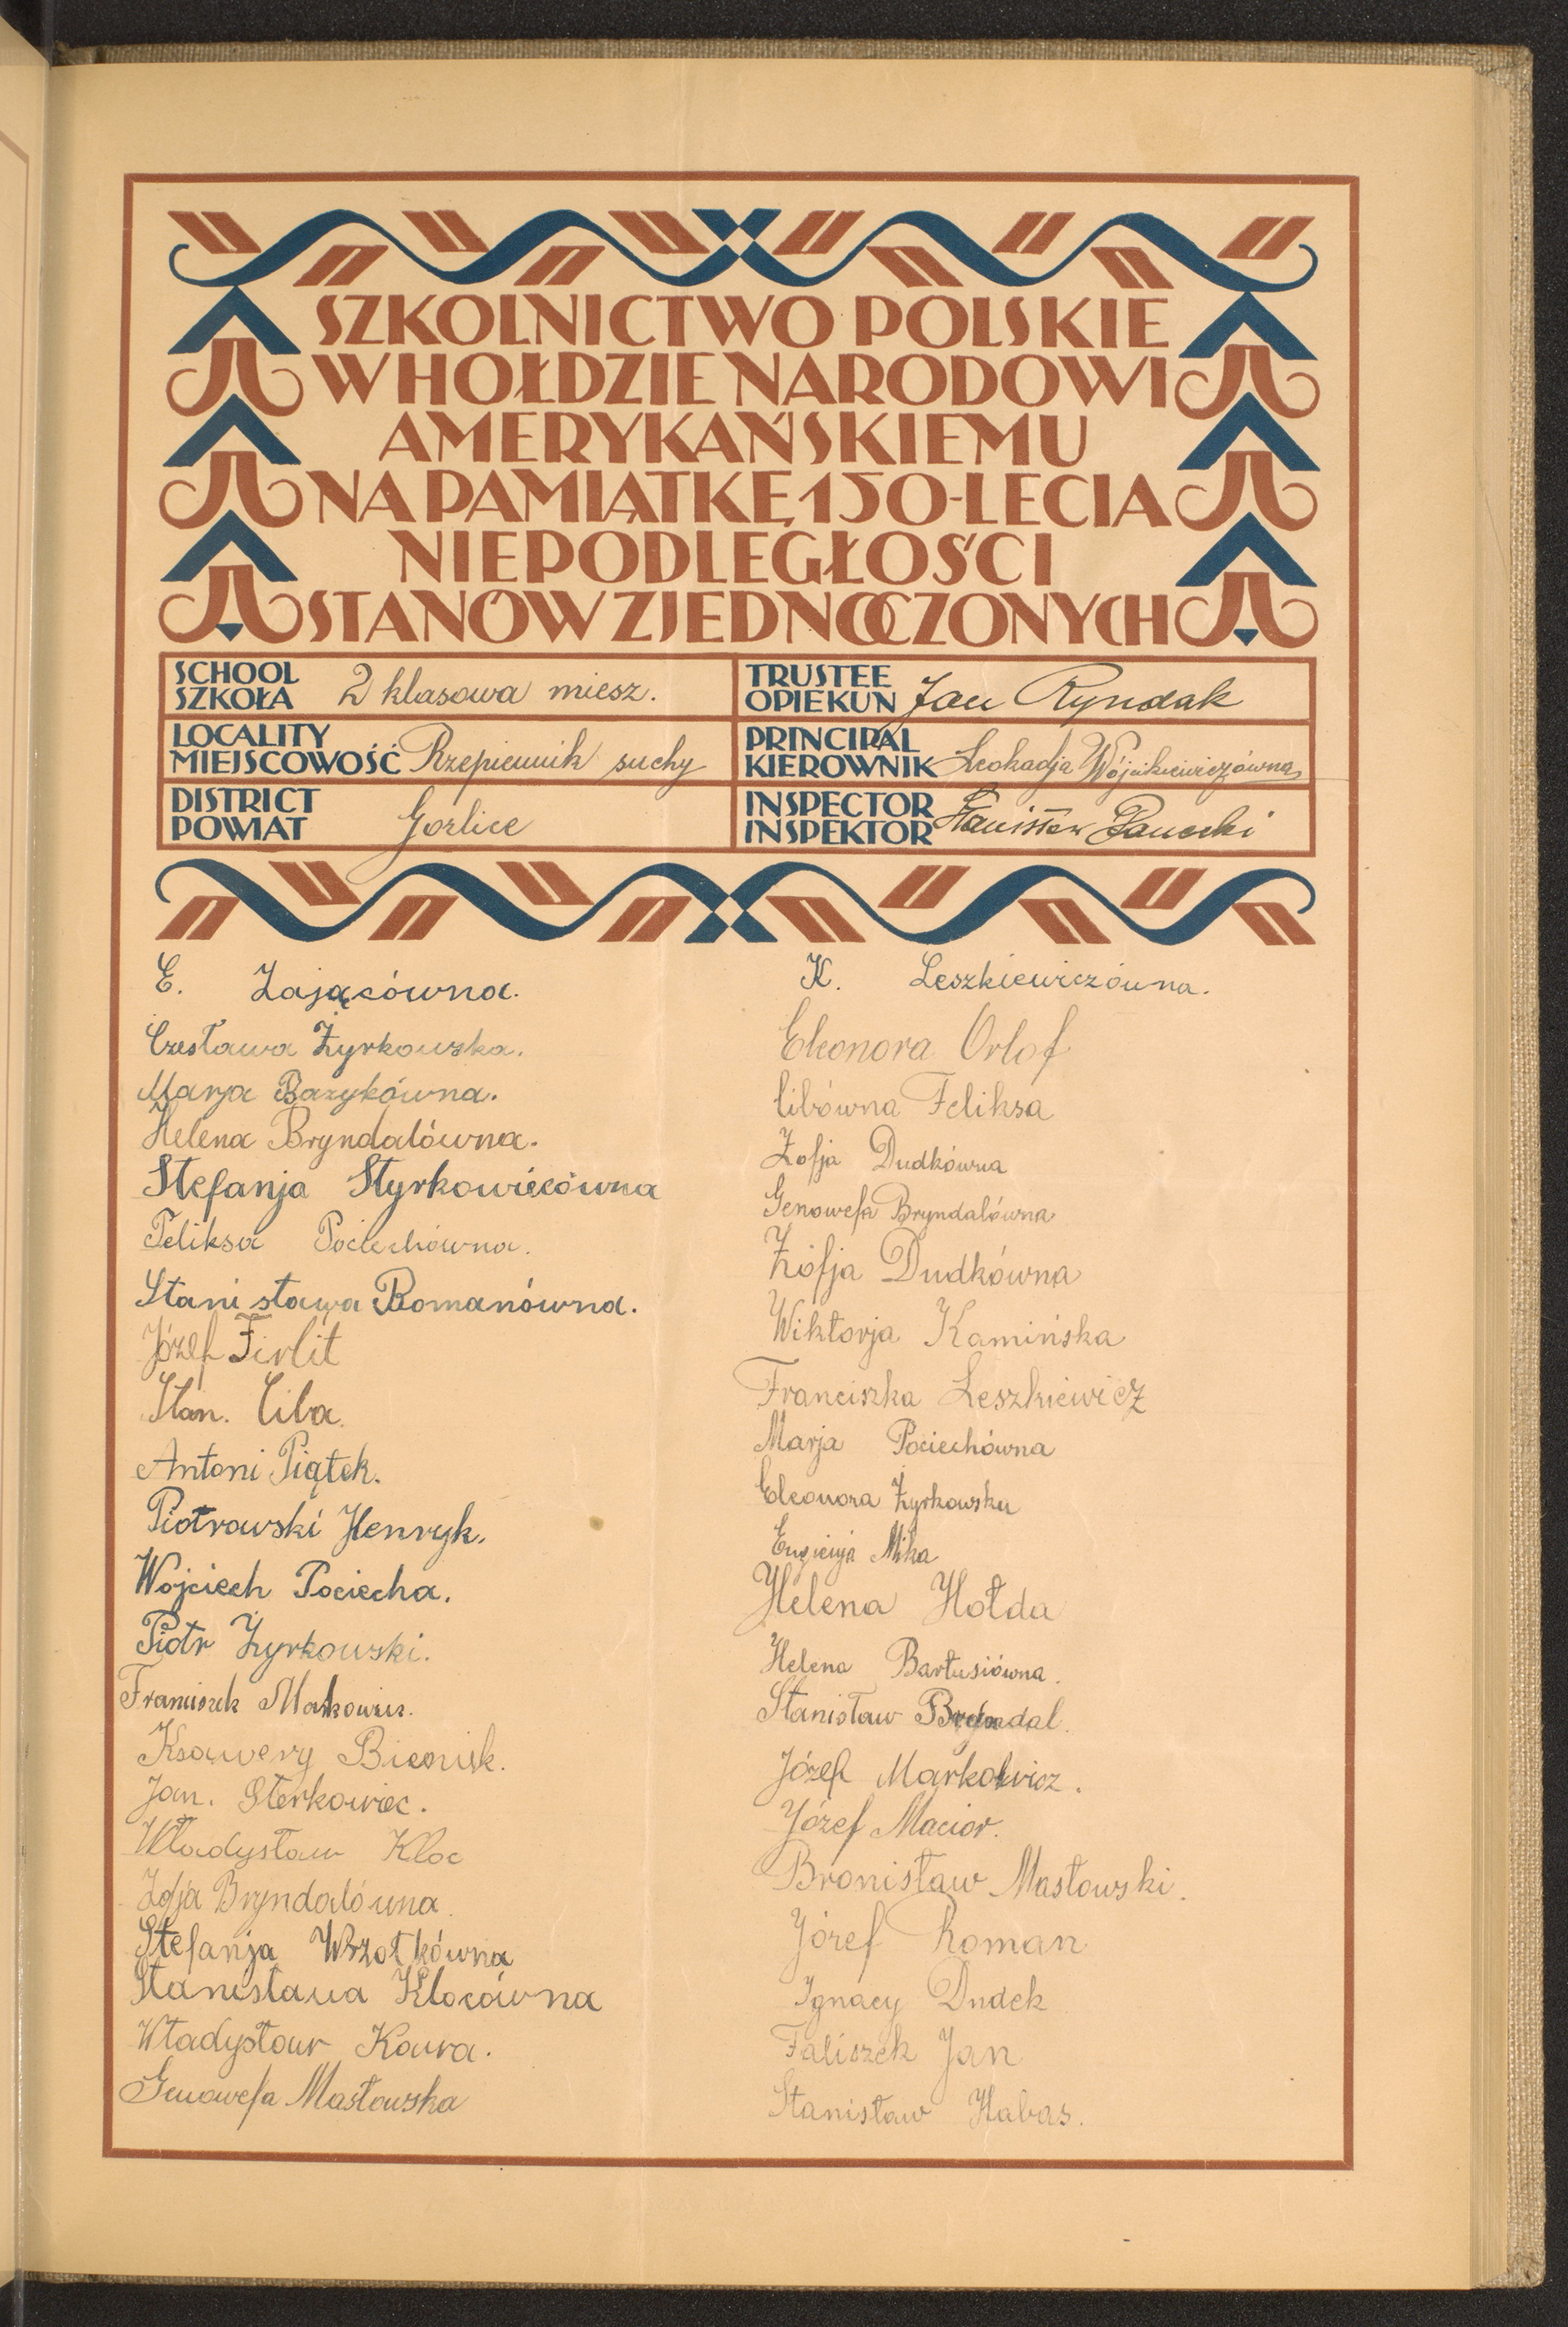 SZKOLNICTWO POLSKIE
W HOŁDZIE NARODOWI
AMERYKAŃSKIEMU
NA PAMIĄTKĘ 150-LECIA
NIEPODLEGŁOŚCI
STANÓW ZJEDNOCZONYCH
SCHOOL
SZKOŁA 2 klasowa miesz.
LOCALITY
MIEJSCOWOŚĆ Rzepiennik suchy
DISTRICT
POWIAT Gorlice
TRUSTEE
OPIEKUN Jan Ryndak
PRINCIPAL
KIEROWNIK Leokadja Wójcikiewiczówna
INSPECTOR
INSPEKTOR Stanisław
E. Zającówna.
Czesława Żyrkowska.
Marja Bazykówna.
Helena Bryndalówna.
Stefanja Styrkowiecówna
Feliksa Pociechówna.
Stanisława Romanówna.
Józef Firlit
Stan. Ciba.
Antoni Piątek.
Piotrowski Henryk.
Wojciech Pociecha.
Piotr Żyrkowski.
Franciszek Markowicz.
Ksawery Bieniek.
Jan. Sterkowiec.
Władysław Kloc
Zofja Bryndalówna.
Stefanja Wszołkówna
Stanisława Klocówna
Władysław Kawa.
Genowefa Masłowska
K. Leszkiewiczówna.
Eleonora Orlof
Cibówna Feliksa
Zofja Dudkówna
Genowefa Bryndalówna
Zofja Dudkówna
Wiktorja Kamińska
Franciszka Leszkiewicz
Marja Pociechówna
Eleonora Żyrkowska
Eugienja Mika
Helena Hołda
Helena Bartusiówna.
Stanisław Bryndal.
Józef Markowicz.
Józef Macior.
Bronisław Masłowski.
Józef Roman
Ignacy Dudek
Faliszek Jan
Stanisław Habas.